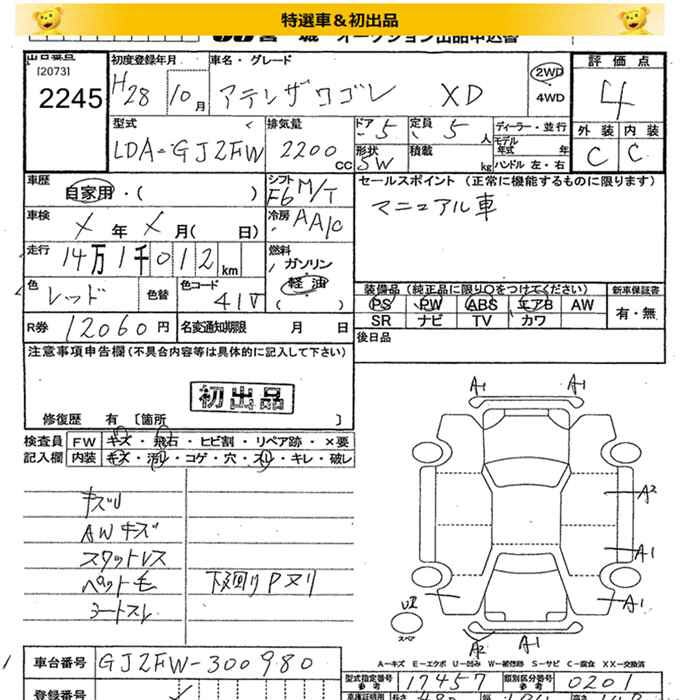 特選車&初出品
宮城 オークション出品申込書
出品番号
[2073]
2245
初度登録年月
H28 10月
車名・グレード
アテンザワゴン XD
2WD
4WD
評価点
4
外装 内装
C C
型式
LDA-GJ2FW
排気量
2200 CC
ドア 5
定員 5 人
形状 SW
積載 kg
ディーラー・並行
モデル年式 年
ハンドル 左・右
車歴
自家用・( )
シフト
F6 M/T
セールスポイント (正常に機能するものに限ります)
マニュアル車
車検
X 年 X 月( 日)
冷房
AA/C
走行
14万1千012km
燃料
ガソリン
軽油
( )
色
レッド
色替
色コード
41V
装備品 (純正品に限り○をつけてください)
PS PW ABS エアB AW
SR ナビ TV カワ
新車保証書
有・無
R券 12060円
名変通知期限 月 日
後日品
注意事項申告欄(不具合内容等は具体的に記入して下さい)
初出品
修復歴 有 [箇所 ]
検査員記入欄
FW キズ・飛石・ヒビ割・リペア跡・×要
内装 キズ・汚レ・コゲ・穴・スレ・キレ・破レ
キズU
AWキズ
スタットレス
ペット毛
シートスレ
下廻りPヌリ
A1 A1
A2
A1
A1
A2 A1
スペア
A-キズ E-エクボ U-凹み W-補修跡 S-サビ C-腐食 XX-交換済
車台番号 GJ2FW-300980
型式指定番号 参考 17457
類別区分番号 参考 0201
登録番号